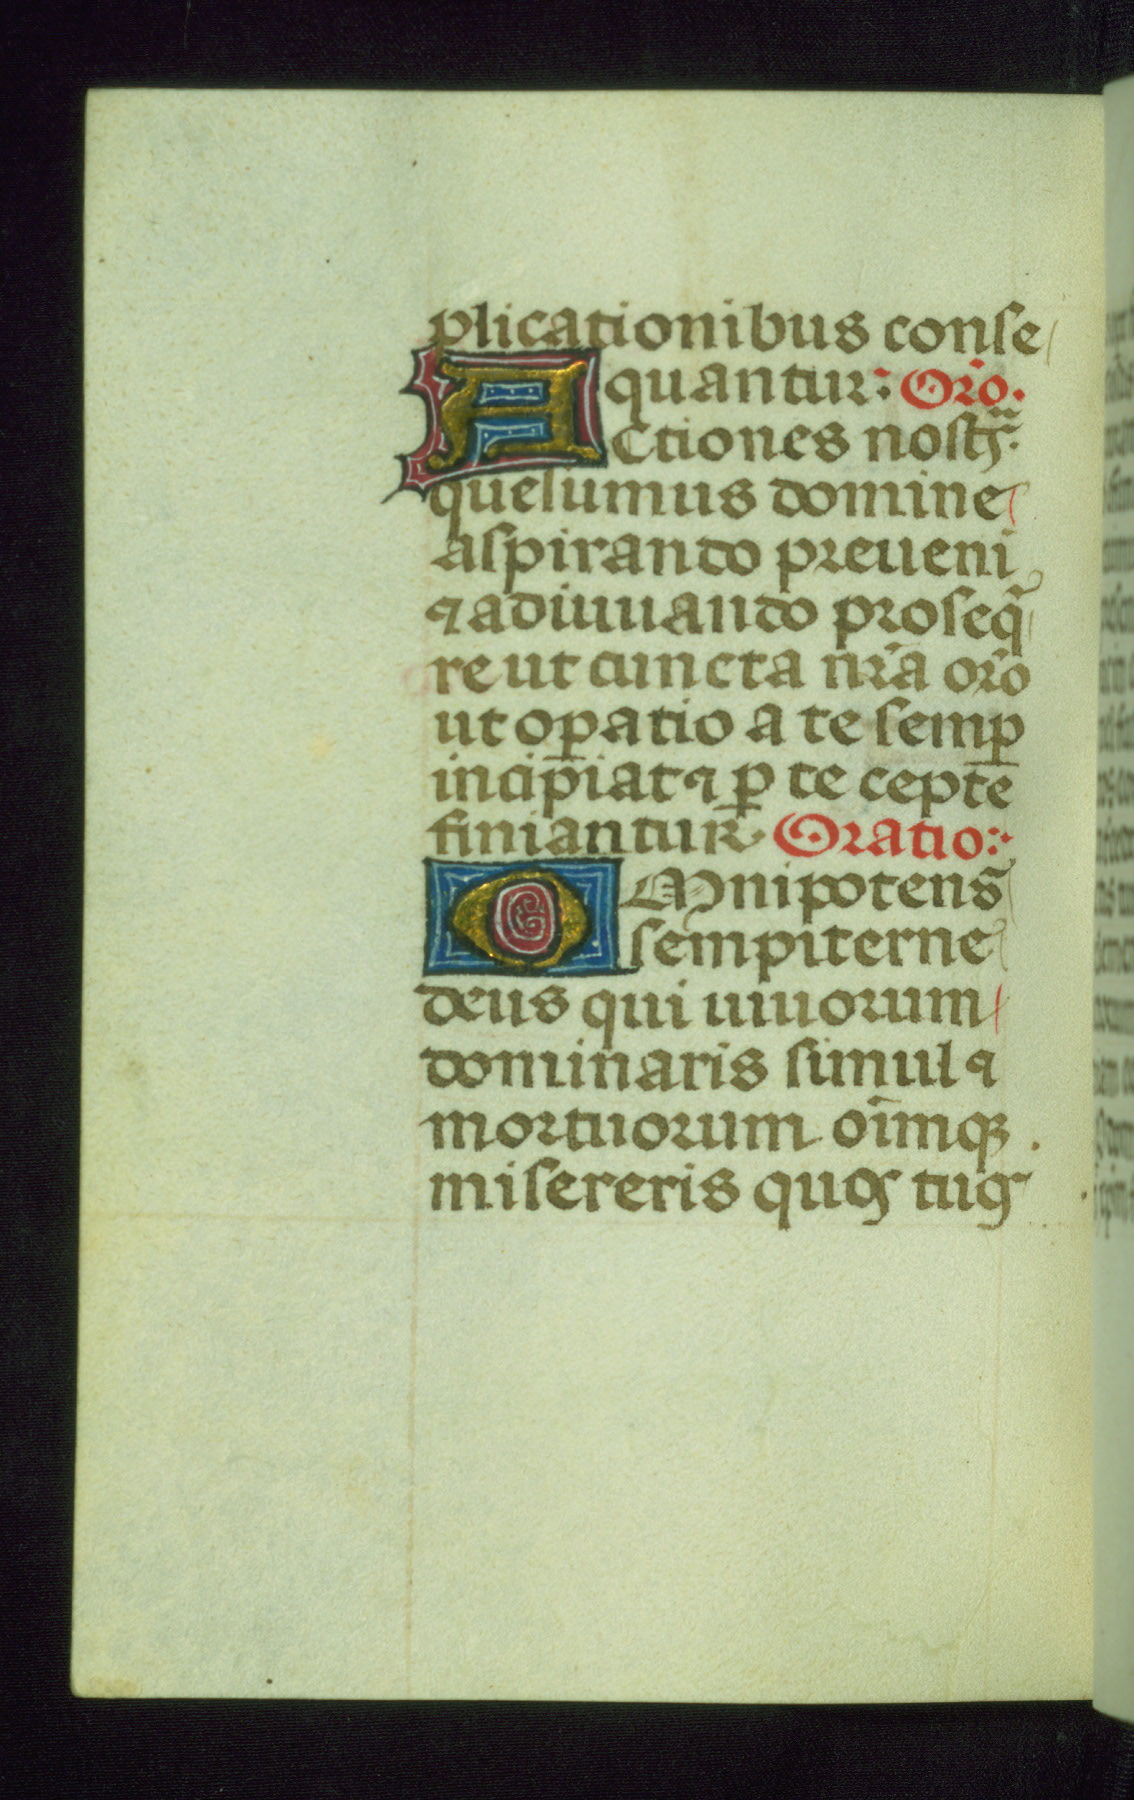 plicationibus conse
quantur: Orō.
Actiones nostras
quesumus domine
aspirando preueni
⁊ adiuuando proseq̄
re ut cuncta nr̄a orō
ut oꝑatio a te semꝑ
incipiat ⁊ ꝑ te cepte
finiantur Oratio:
OMnipotens
sempiterne
deus qui uiuorum
dominaris simul ⁊
mortuorum oīmqꝫ
misereris quos tuos